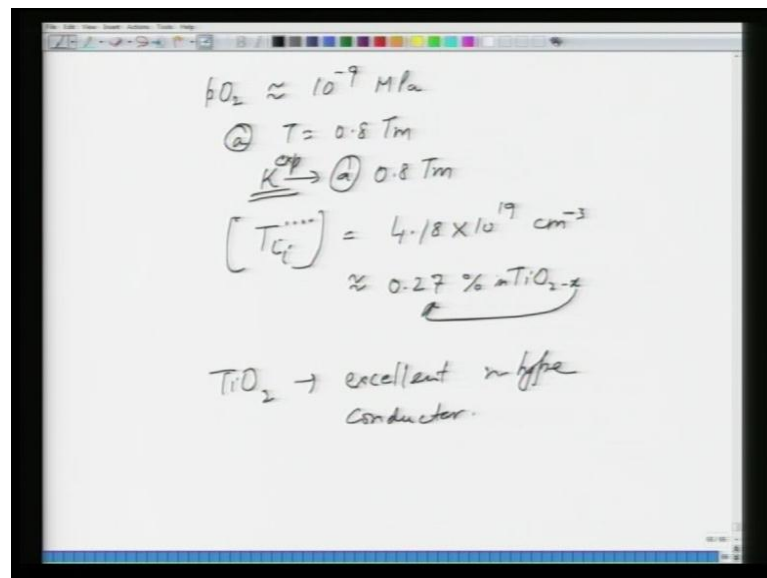 File Edit View Insert Actions Tools Help
pO₂ ≈ 10⁻⁹ MPa
@ T = 0.8 Tm
K^exp → @ 0.8 Tm
[Ti_i^....] = 4.18 × 10¹⁹ cm⁻³
≈ 0.27 % in TiO₂₋ₓ
TiO₂ → excellent n-type
conductor.